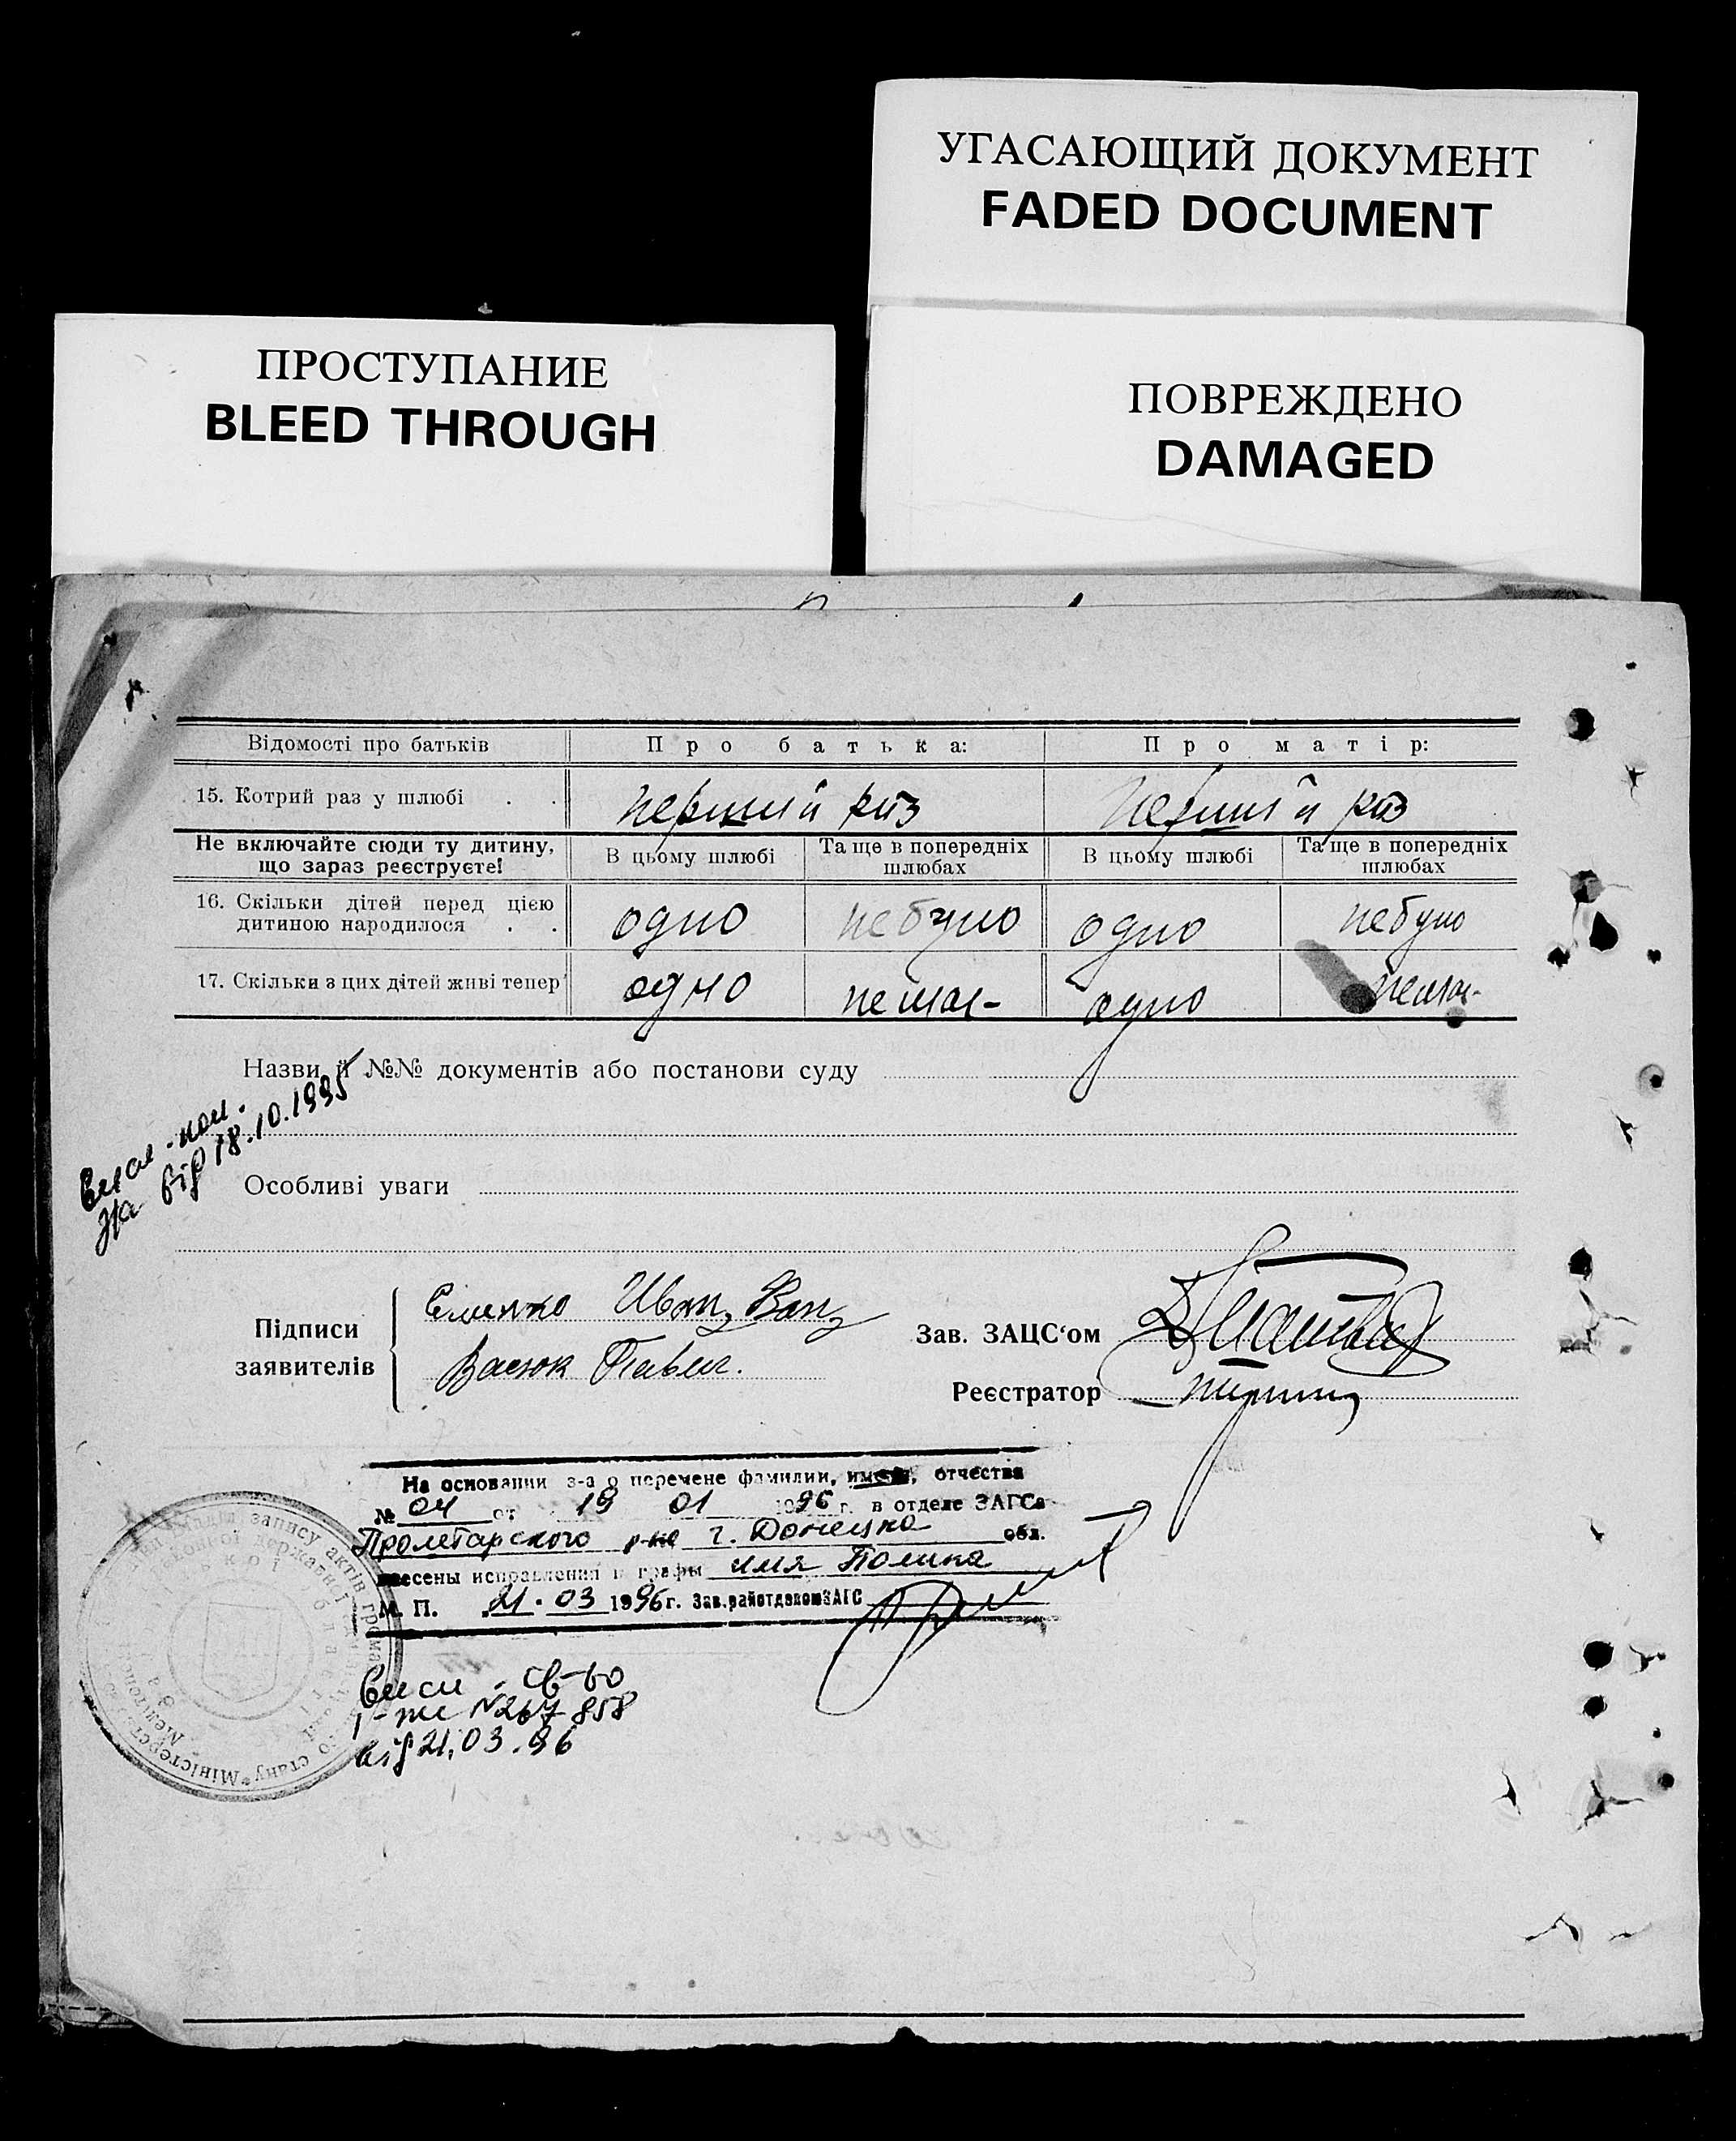 УГАСАЮЩИЙ ДОКУМЕНТ
FADED DOCUMENT
ПРОСТУПАНИЕ
BLEED THROUGH
ПОВРЕЖДЕНО
DAMAGED
Відомості про батьків Про батька: Про матір:
15. Котрий раз у шлюбі . . перший раз перший раз
Не включайте сюди ту дитину, що зараз реєструєте! В цьому шлюбі Та ще в попередніх шлюбах В цьому шлюбі Та ще в попередніх шлюбах
16. Скільки дітей перед цією
дитиною народилося . . одно небуло одно небуло
17. Скільки з цих дітей живі тепер одно немає одно немає
Назви й №№ документів або постанови суду
від 18.10.1995
Особливі уваги
Підписи
заявителів
Иван
Васюк Павел.
Зав. ЗАЦС'ом
Реєстратор
На основании з-а о перемене фамилии, имени, отчества
№ 04 от 19 01 1996 г. в отделе ЗАГСа
Пролетарского р-на г. Донецка обл.
внесены исправления в графы имя Полина
М. П. 21.03 1996 г. Зав.райотделомЗАГС
св-во
№267858
від 21.03.96
запису актів
стану * Міністерст